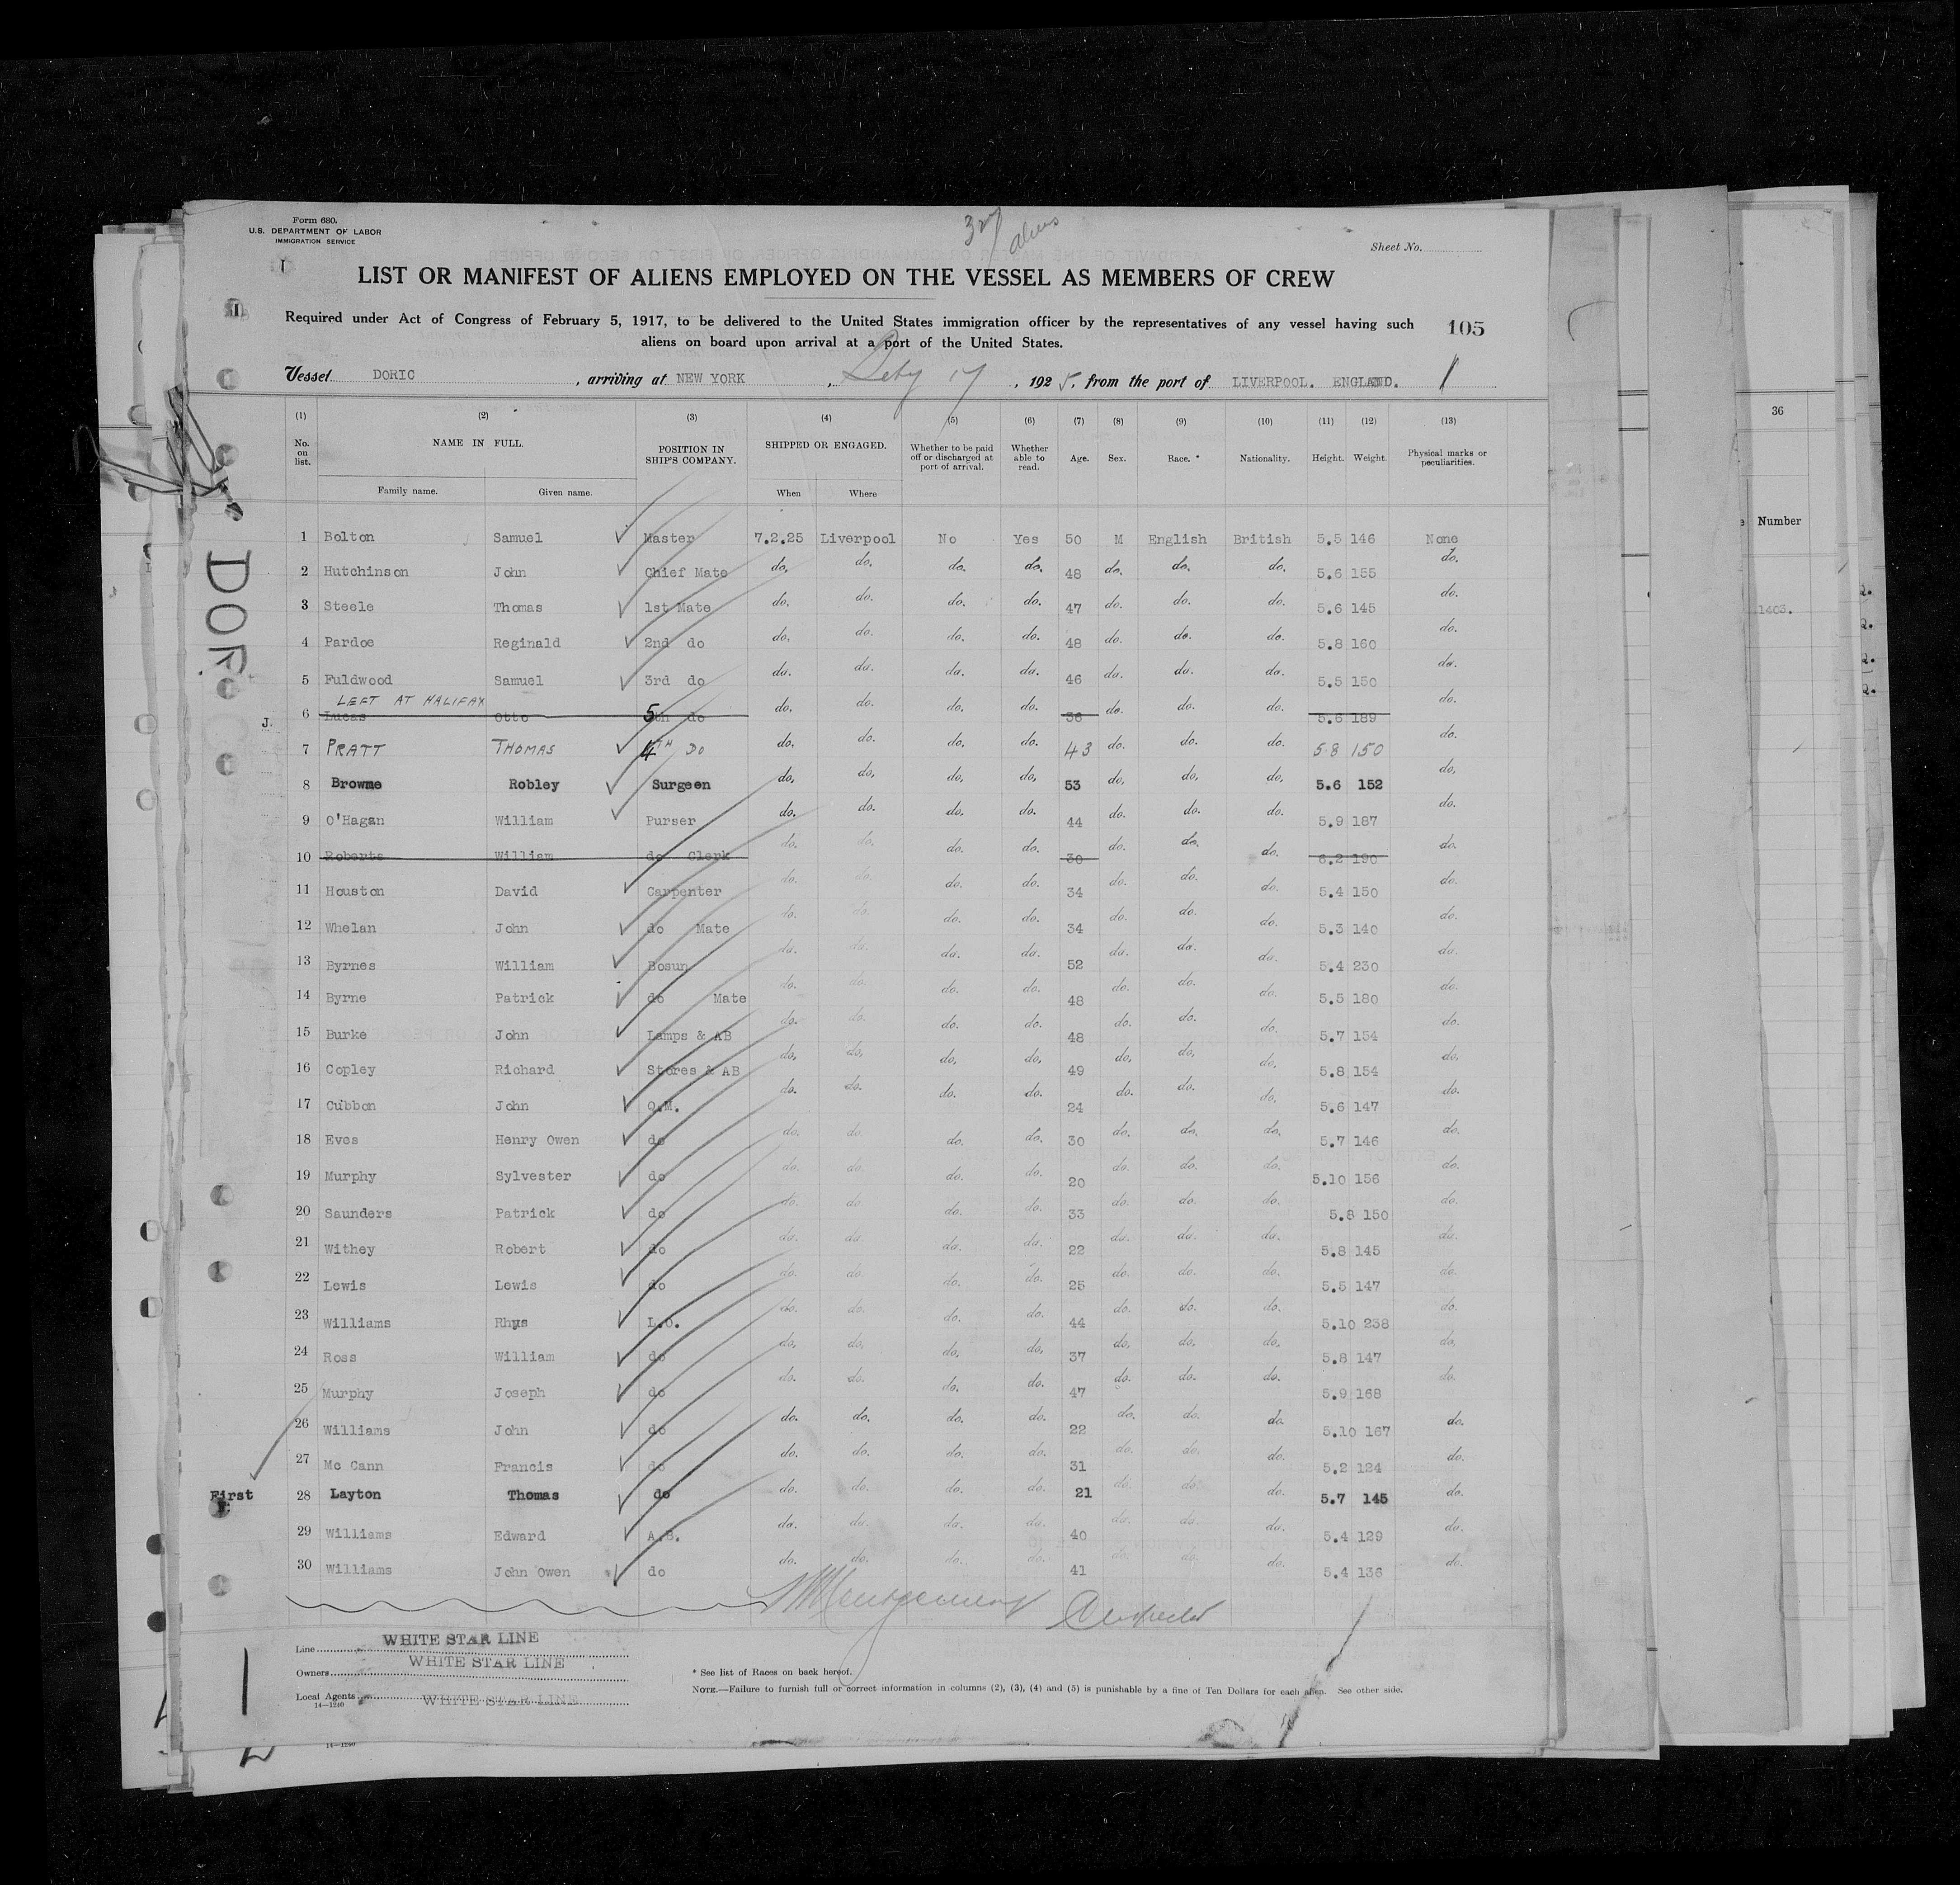 Form 680.
U.S. DEPARTMENT OF LABOR
IMMIGRATION SERVICE
3rd aliens
Sheet No.
LIST OR MANIFEST OF ALIENS EMPLOYED ON THE VESSEL AS MEMBERS OF CREW
Required under Act of Congress of February 5, 1917, to be delivered to the United States immigration officer by the representatives of any vessel having such
aliens on board upon arrival at a port of the United States.
105
Vessel DORIC, arriving at NEW YORK, Feby 17, 1925, from the port of LIVERPOOL. ENGLAND. 1
(1) (2) (3) (4) (5) (6) (7) (8) (9) (10) (11) (12) (13)
No. on list. NAME IN FULL. POSITION IN SHIP'S COMPANY. SHIPPED OR ENGAGED. Whether to be paid off or discharged at port of arrival. Whether able to read. Age. Sex. Race. * Nationality. Height. Weight. Physical marks or peculiarities.
Family name. Given name. When Where
1 Bolton Samuel Master 7.2.25 Liverpool No Yes 50 M English British 5.5 146 None
2 Hutchinson John Chief Mate do. do. do. do. 48 do. do. do. 5.6 155 do.
3 Steele Thomas 1st Mate do. do. do. do. 47 do. do. do. 5.6 145 do.
4 Pardoe Reginald 2nd do do. do. do. do. 48 do. do. do. 5.8 160 do.
5 Fuldwood Samuel 3rd do do. do. do. do. 46 do. do. do. 5.5 150 do.
LEFT AT HALIFAX
6 Lucas Otto 5th do do. do. do. do. 36 do. do. do. 5.6 189 do.
7 PRATT THOMAS 4TH DO do. do. do. do. 43 do. do. do. 5.8 150 do.
8 Browne Robley Surgeon do. do. do. do. 53 do. do. do. 5.6 152 do.
9 O'Hagan William Purser do. do. do. do. 44 do. do. do. 5.9 187 do.
10 Roberts William do Clerk do. do. do. do. 30 do. do. do. 6.2 190 do.
11 Houston David Carpenter do. do. do. do. 34 do. do. do. 5.4 150 do.
12 Whelan John do Mate do. do. do. do. 34 do. do. do. 5.3 140 do.
13 Byrnes William Bosun do. do. do. do. 52 do. do. do. 5.4 230 do.
14 Byrne Patrick do Mate do. do. do. do. 48 do. do. do. 5.5 180 do.
15 Burke John Lamps & AB do. do. do. do. 48 do. do. do. 5.7 154 do.
16 Copley Richard Stores & AB do. do. do. do. 49 do. do. do. 5.8 154 do.
17 Cubbon John Q.M. do. do. do. do. 24 do. do. do. 5.6 147 do.
18 Eves Henry Owen do do. do. do. do. 30 do. do. do. 5.7 146 do.
19 Murphy Sylvester do do. do. do. do. 20 do. do. do. 5.10 156 do.
20 Saunders Patrick do do. do. do. do. 33 do. do. do. 5.8 150 do.
21 Withey Robert do do. do. do. do. 22 do. do. do. 5.8 145 do.
22 Lewis Lewis do do. do. do. do. 25 do. do. do. 5.5 147 do.
23 Williams Rhys L.O. do. do. do. do. 44 do. do. do. 5.10 238 do.
24 Ross William do do. do. do. do. 37 do. do. do. 5.8 147 do.
25 Murphy Joseph do do. do. do. do. 47 do. do. do. 5.9 168 do.
26 Williams John do do. do. do. do. 22 do. do. do. 5.10 167 do.
27 Mc Cann Francis do do. do. do. do. 31 do. do. do. 5.2 124 do.
First 28 Layton Thomas do do. do. do. do. 21 do. do. do. 5.7 145 do.
29 Williams Edward A.B. do. do. do. do. 40 do. do. do. 5.4 129 do.
30 Williams John Owen do do. do. do. do. 41 do. do. do. 5.4 136 do.
Montgomery Inspector
Line WHITE STAR LINE
Owners WHITE STAR LINE
Local Agents WHITE STAR LINE
14—1240
* See list of Races on back hereof.
NOTE.—Failure to furnish full or correct information in columns (2), (3), (4) and (5) is punishable by a fine of Ten Dollars for each alien. See other side.
14—1240
36
Number
1403.